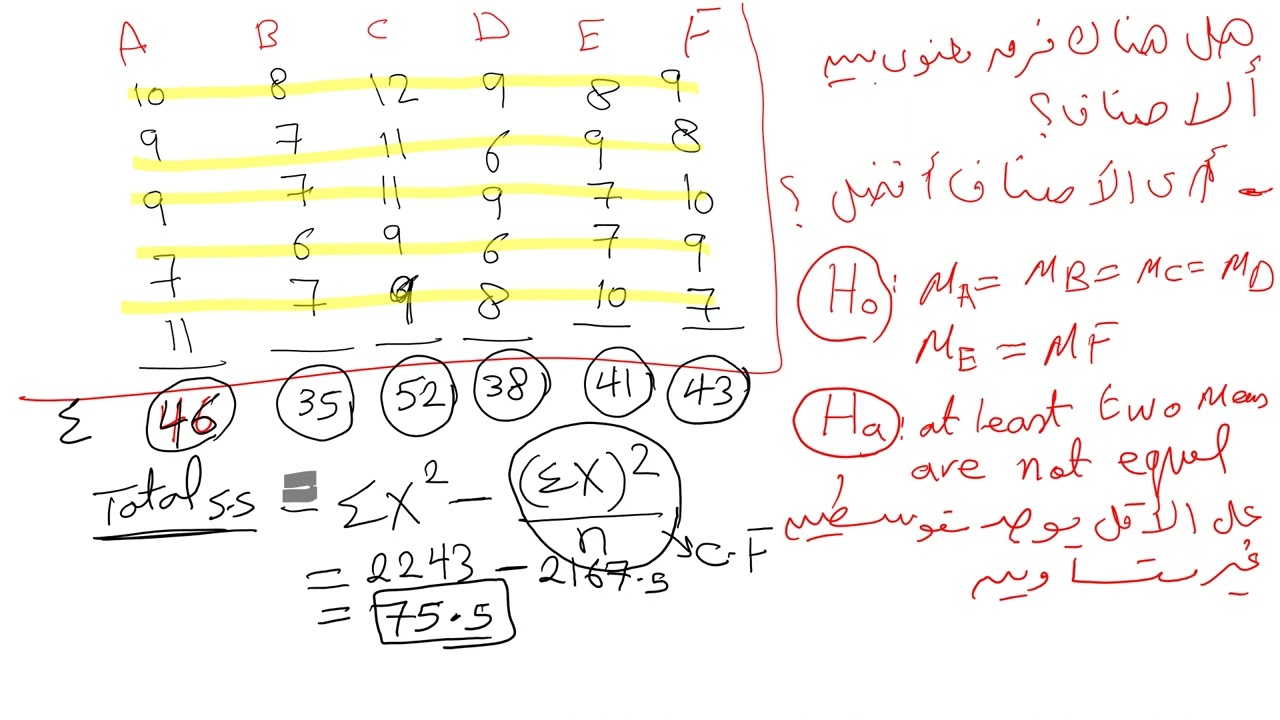 A B C D E F
10 8 12 9 8 9
9 7 11 6 9 8
9 7 11 9 7 10
7 6 9 6 7 9
11 7 9 8 10 7
Σ 46 35 52 38 41 43
Total s.s = ΣX² - (ΣX)²/n → C.F
= 2243 - 2167.5
= 75.5
هل هناك فرق معنوي بين
ألاصناف؟
- أي الأصناف أفضل؟
Ho: MA = MB = MC = MD
ME = MF
Ha: at least two Means
are not equal
على الأقل يوجد متوسطين
غير متساويين